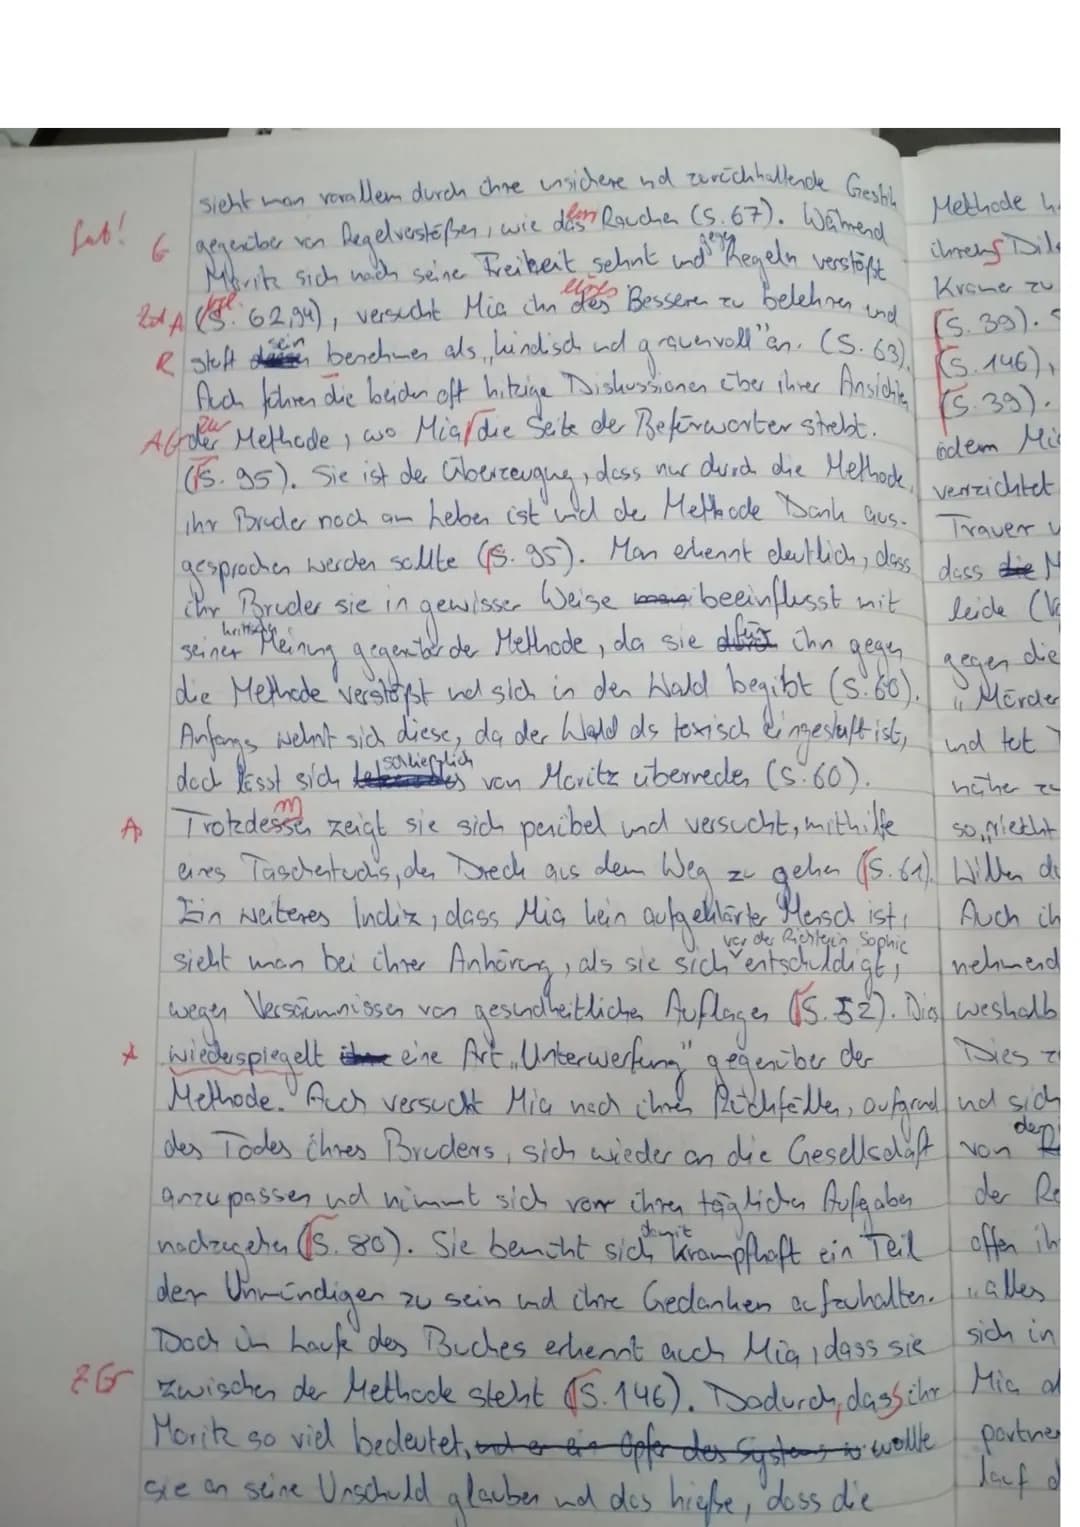 sieht man vorallem durch ihre unsichere und zurückhaltende
Sat! G gegenüber von Regelverstößen, wie das Rauchen (S. 67). Während
Moritz sich nach seine Freiheit sehnt und gegen Regeln verstößt
A (S. 62,94), versucht Mia ihn des Besseren zu belehren und
R stuft sein benehmen als „kindisch und grauenvoll" an. (S. 63)
Auch führen die beiden oft hitzige Diskussionen über ihrer Ansichten
zu der Methode, wo Mia die Seite der Befürworter strebt.
(S. 95). Sie ist der Überzeugung, dass nur durch die Methode
ihr Bruder noch am Leben ist und der Methode Dank aus-
gesprochen werden sollte (S. 95). Man erkennt deutlich, dass
ihr Bruder sie in gewisser Weise beeinflusst mit
seiner kritischen Meinung gegenüber der Methode, da sie für ihn gegen
die Methode verstößt und sich in den Wald begibt (S. 60).
Anfangs wehrt sich diese, da der Wald als toxisch eingestuft ist,
doch lässt sich schließlich von Moritz überreden (S. 60).
A Trotzdessen zeigt sie sich penibel und versucht, mithilfe
eines Taschentuchs, den Dreck aus dem Weg zu gehen (S. 61).
Ein weiteres Indiz, dass Mia kein aufgeklärter Mensch ist,
sieht man bei ihrer Anhörung, als sie sich vor der Richterin Sophie entschuldigt,
wegen Versäumnissen von gesundheitlichen Auflagen (S. 52). Dies
wiederspiegelt eine Art „Unterwerfung" gegenüber der
Methode. Auch versucht Mia nach ihren Rückfällen, aufgrund
des Todes ihres Bruders, sich wieder an die Gesellschaft
anzupassen und nimmt sich vor ihren täglichen Aufgaben
nachzugehen (S. 80). Sie bemüht sich damit krampfhaft ein Teil
der Unmündigen zu sein und ihre Gedanken aufzuhalten.
Doch im Laufe des Buches erkennt auch Mia, dass sie
ZGr zwischen der Methode steht (S. 146). Dadurch, dass ihr
Moritz so viel bedeutet, wollte
sie an seine Unschuld glauben und das hieße, dass die
Methode
ihrem
Kramer zu
(S. 39).
(S. 146),
(S. 39).
indem
verzichtet
Trauer
dass
leide
gegen die
„Mörder
und tot
näher
so „riecht
Willen
Auch
nehmend
weshalb
Dies
und sich
von den
der
offen
„alles
sich in
Mia
partner
lauf